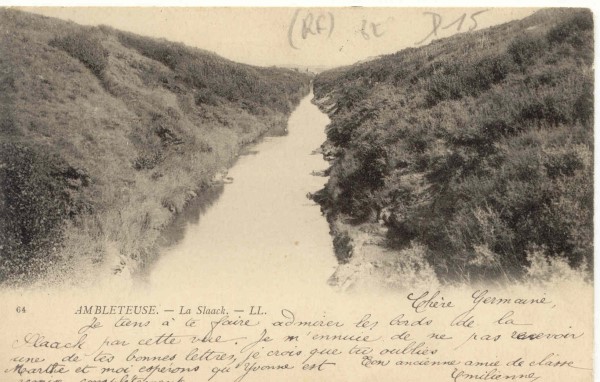 (RF) BE D 15
64 AMBLETEUSE. — La Slaack. — LL.
Chère Germaine,
Je tiens à te faire admirer les bords de la
Slaack par cette vue. Je m'ennuie de ne pas recevoir
une de tes bonnes lettres, je crois que tu oublies
Marthe et moi espérons qu'Yvonne est
complètement
Ton ancienne amie de classe
Emilienne